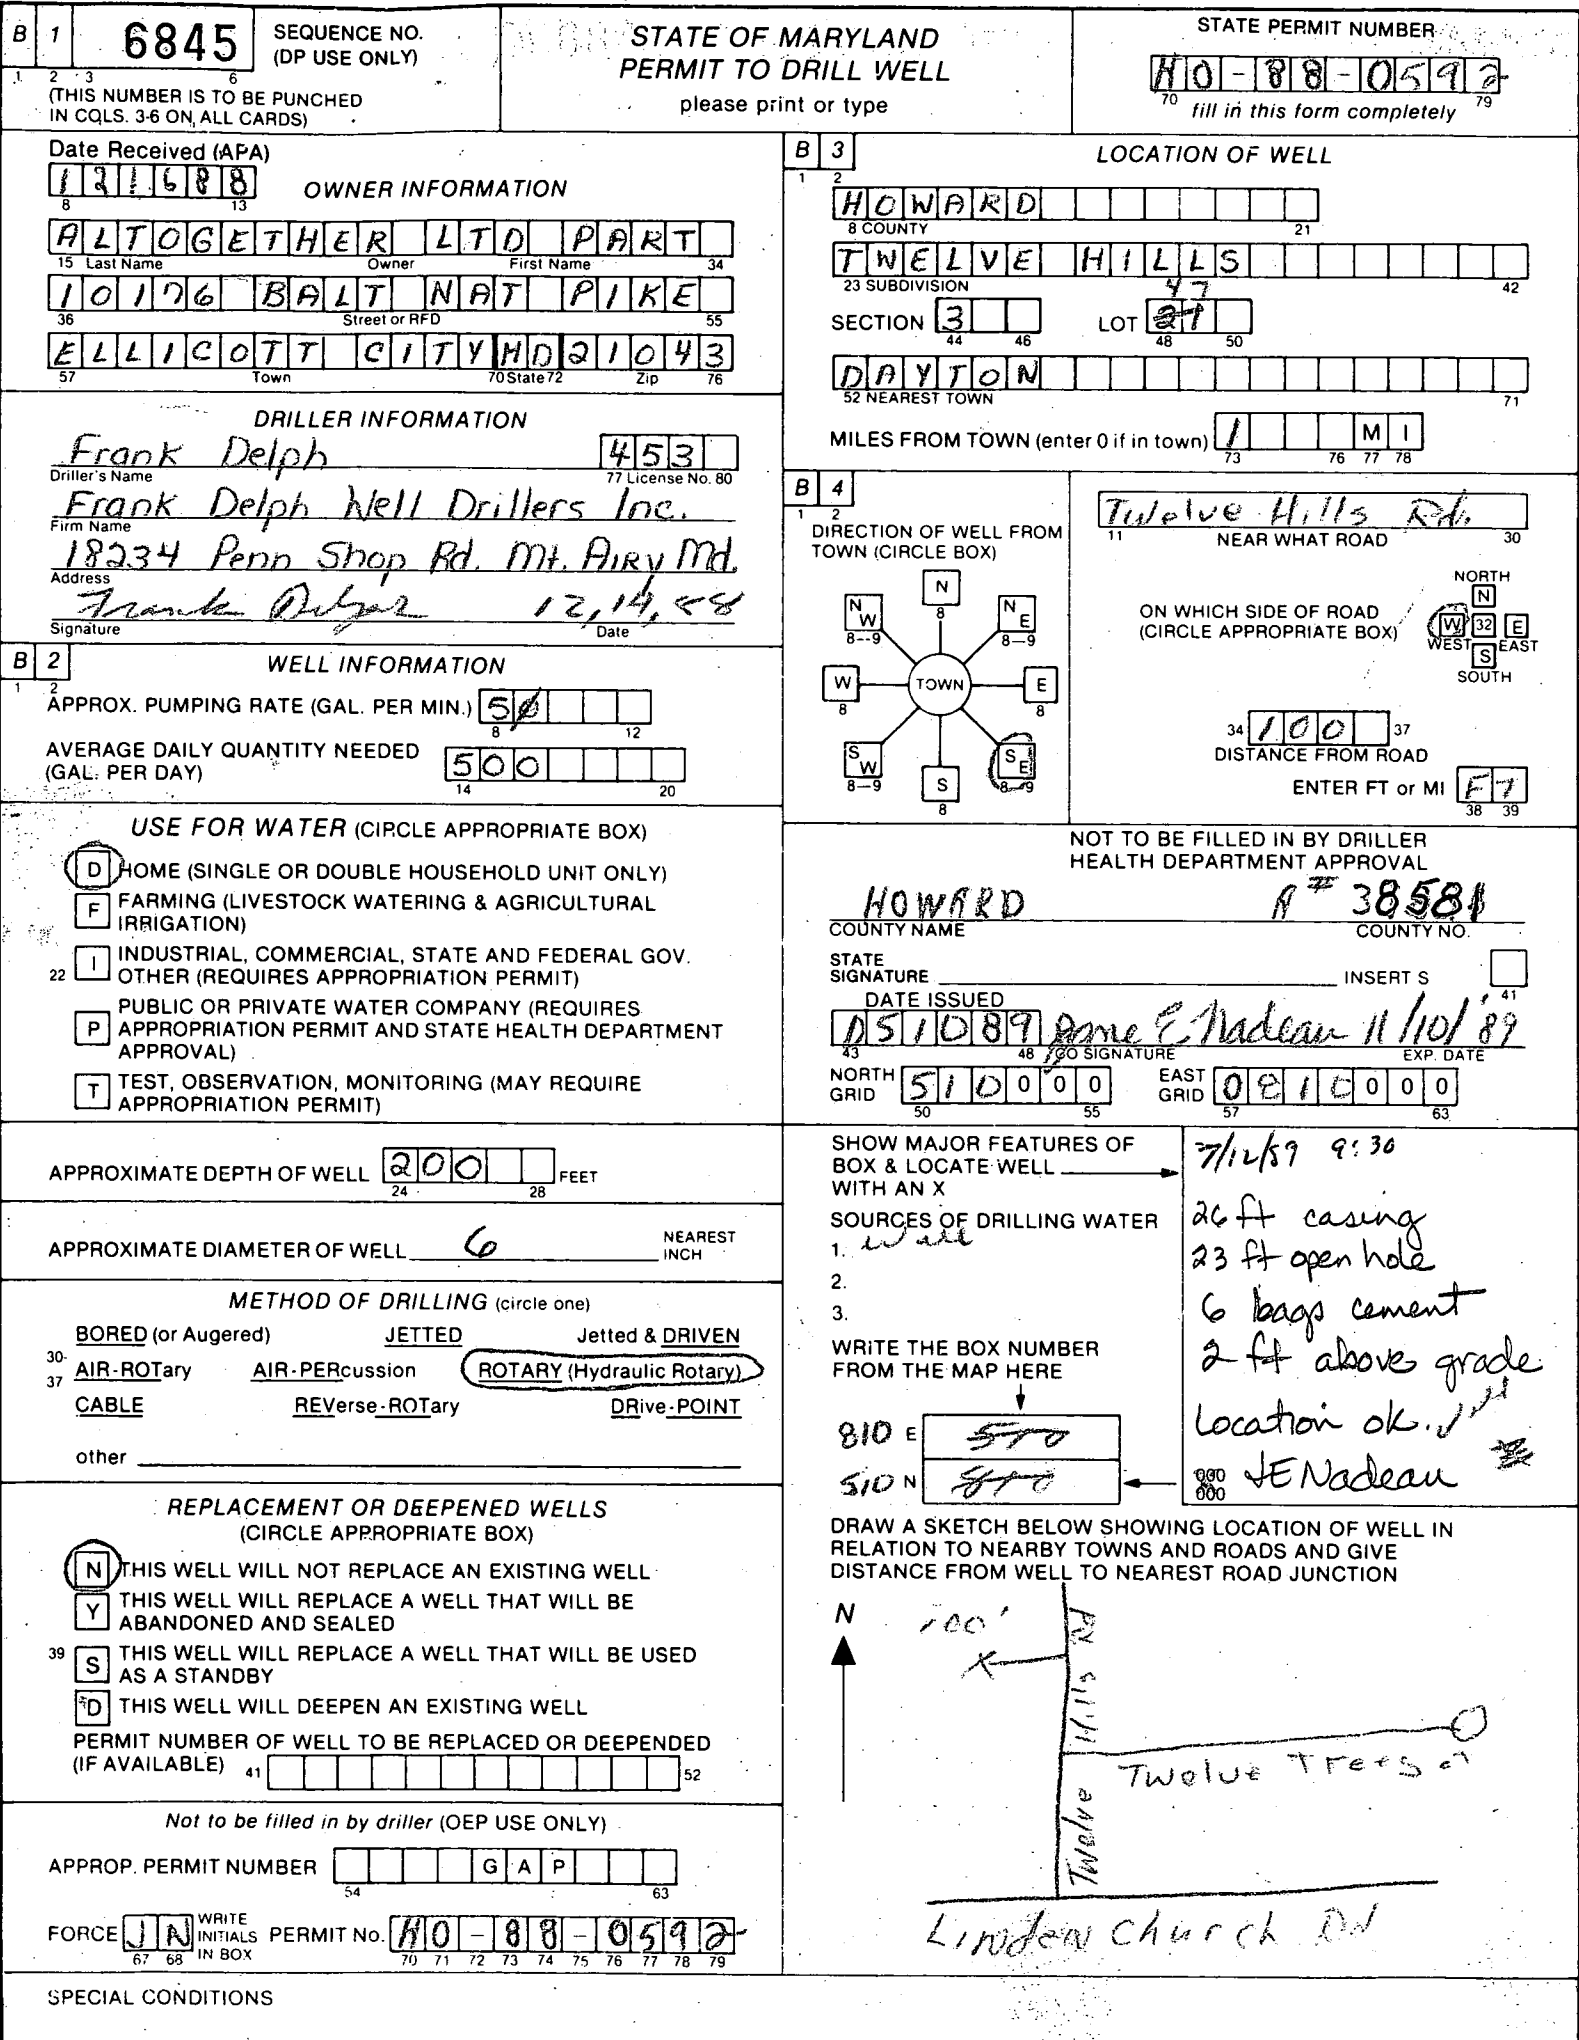 B 1 6845 SEQUENCE NO. (DP USE ONLY)
1 2 3 6
(THIS NUMBER IS TO BE PUNCHED
IN COLS. 3-6 ON ALL CARDS)
STATE OF MARYLAND
PERMIT TO DRILL WELL
please print or type
STATE PERMIT NUMBER
HO-88-0592
70 79
fill in this form completely
Date Received (APA)
121688
8 13
OWNER INFORMATION
ALTOGETHER LTD PART
15 Last Name Owner First Name 34
10176 BALT NAT PIKE
36 Street or RFD 55
ELLICOTT CITY MD 21043
57 Town 70 State 72 Zip 76
DRILLER INFORMATION
Frank Delph 453
Driller's Name 77 License No. 80
Frank Delph Well Drillers Inc.
Firm Name
18234 Penn Shop Rd. Mt. Airy Md.
Address
Frank 12,14,88
Signature Date
B 2 WELL INFORMATION
1 2
APPROX. PUMPING RATE (GAL. PER MIN.) 5
8 12
AVERAGE DAILY QUANTITY NEEDED
(GAL. PER DAY) 500
14 20
USE FOR WATER (CIRCLE APPROPRIATE BOX)
D HOME (SINGLE OR DOUBLE HOUSEHOLD UNIT ONLY)
F FARMING (LIVESTOCK WATERING & AGRICULTURAL
IRRIGATION)
22 I INDUSTRIAL, COMMERCIAL, STATE AND FEDERAL GOV.
OTHER (REQUIRES APPROPRIATION PERMIT)
P PUBLIC OR PRIVATE WATER COMPANY (REQUIRES
APPROPRIATION PERMIT AND STATE HEALTH DEPARTMENT
APPROVAL)
T TEST, OBSERVATION, MONITORING (MAY REQUIRE
APPROPRIATION PERMIT)
APPROXIMATE DEPTH OF WELL 200 FEET
24 28
APPROXIMATE DIAMETER OF WELL 6 NEAREST INCH
METHOD OF DRILLING (circle one)
BORED (or Augered) JETTED Jetted & DRIVEN
30-37 AIR-ROTary AIR-PERcussion ROTARY (Hydraulic Rotary)
CABLE REVerse-ROTary DRive-POINT
other
REPLACEMENT OR DEEPENED WELLS
(CIRCLE APPROPRIATE BOX)
N THIS WELL WILL NOT REPLACE AN EXISTING WELL
Y THIS WELL WILL REPLACE A WELL THAT WILL BE
ABANDONED AND SEALED
39 S THIS WELL WILL REPLACE A WELL THAT WILL BE USED
AS A STANDBY
D THIS WELL WILL DEEPEN AN EXISTING WELL
PERMIT NUMBER OF WELL TO BE REPLACED OR DEEPENED
(IF AVAILABLE) 41 52
Not to be filled in by driller (OEP USE ONLY)
APPROP. PERMIT NUMBER GAP
54 63
FORCE JN WRITE INITIALS IN BOX PERMIT No. HO-88-0592
67 68 70 71 72 73 74 75 76 77 78 79
SPECIAL CONDITIONS
B 3 LOCATION OF WELL
1 2
HOWARD
8 COUNTY 21
TWELVE HILLS
23 SUBDIVISION 42
47
SECTION 3 LOT
44 46 48 50
DAYTON
52 NEAREST TOWN 71
MILES FROM TOWN (enter 0 if in town) 1 MI
73 76 77 78
B 4
1 2
DIRECTION OF WELL FROM
TOWN (CIRCLE BOX)
N
8
NW NE
8--9 8--9
W TOWN E
8 8
SW SE
8--9 8--9
S
8
Twelve Hills Rd.
11 NEAR WHAT ROAD 30
ON WHICH SIDE OF ROAD
(CIRCLE APPROPRIATE BOX)
NORTH
N
W 32 E
WEST EAST
S
SOUTH
34 100 37
DISTANCE FROM ROAD
ENTER FT or MI FT
38 39
NOT TO BE FILLED IN BY DRILLER
HEALTH DEPARTMENT APPROVAL
HOWARD A # 38581
COUNTY NAME COUNTY NO.
STATE
SIGNATURE INSERT S
41
DATE ISSUED
051089 E. Nadeau 11/10/89
43 48 CO SIGNATURE EXP. DATE
NORTH GRID 510000 EAST GRID 0810000
50 55 57 63
SHOW MAJOR FEATURES OF
BOX & LOCATE WELL
WITH AN X
SOURCES OF DRILLING WATER
1. Well
2.
3.
WRITE THE BOX NUMBER
FROM THE MAP HERE
810 E 510
510 N 810
7/12/89 9:30
26 ft casing
23 ft open hole
6 bags cement
2 ft above grade
Location ok.
000
000 JENadeau
DRAW A SKETCH BELOW SHOWING LOCATION OF WELL IN
RELATION TO NEARBY TOWNS AND ROADS AND GIVE
DISTANCE FROM WELL TO NEAREST ROAD JUNCTION
N
100'
X
Twelve Hills Rd
Twelve Trees Ct
Linden Church Rd